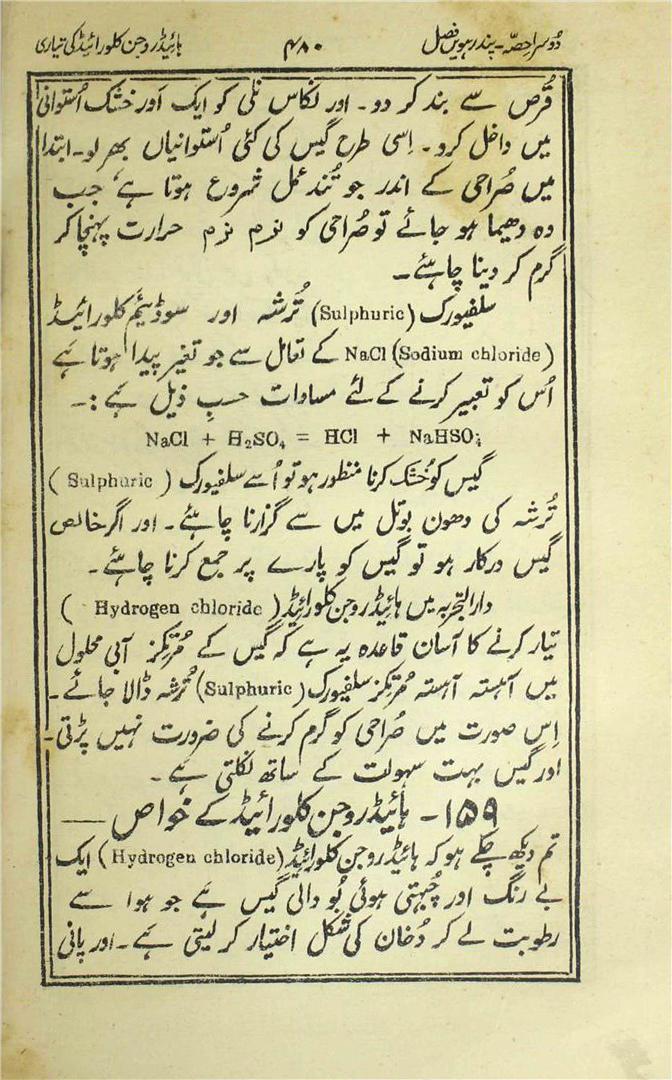 دُوسرا حصّہ۔ پندرہویں فصل ۴۸۰ ہائیڈروجن کلورائیڈ کی تیاری
قُرص سے بند کر دو۔ اور نکاس نلی کو ایک اَور خشک اُستوانی
میں داخل کرو۔ اِسی طرح گیس کی کئی اُستوانیاں بھر لو۔ ابتدا
میں صُراحی کے اندر جو تُند عمل شروع ہوتا ہے، جب
وہ دھیما ہو جائے تو صُراحی کو نرم نرم حرارت پہنچا کر
گرم کر دینا چاہئے۔
سلفیورک (Sulphuric) تُرشہ اور سوڈیئم کلورائیڈ
(Sodium chloride) NaCl کے تعامل سے جو تغیر پیدا ہوتا ہے
اُس کو تعبیر کرنے کے لئے مساوات حسبِ ذیل ہے :۔
NaCl + H₂SO₄ = HCl + NaHSO₄
گیس کو خُشک کرنا منظور ہو تو اُسے سلفیورک (Sulphuric)
تُرشہ کی دھون بوتل میں سے گزارنا چاہئے۔ اور اگر خالص
گیس درکار ہو تو گیس کو پارے پر جمع کرنا چاہئے۔
دارالتجربہ میں ہائیڈروجن کلورائیڈ (Hydrogen chloride)
تیار کرنے کا آسان قاعدہ یہ ہے کہ گیس کے مُرتکز آبی محلول
میں آہستہ آہستہ مُرتکز سلفیورک (Sulphuric) تُرشہ ڈالا جائے۔
اِس صورت میں صُراحی کو گرم کرنے کی ضرورت نہیں پڑتی۔
اور گیس بہت سہولت کے ساتھ نکلتی ہے۔
۱۵۹۔ ہائیڈروجن کلورائیڈ کے خواص ــــ
تم دیکھ چکے ہو کہ ہائیڈروجن کلورائیڈ (Hydrogen chloride) ایک
بے رنگ اور چُبھتی ہوئی بُو والی گیس ہے جو ہوا سے
رطوبت لے کر دُخان کی شکل اختیار کر لیتی ہے۔ اور پانی